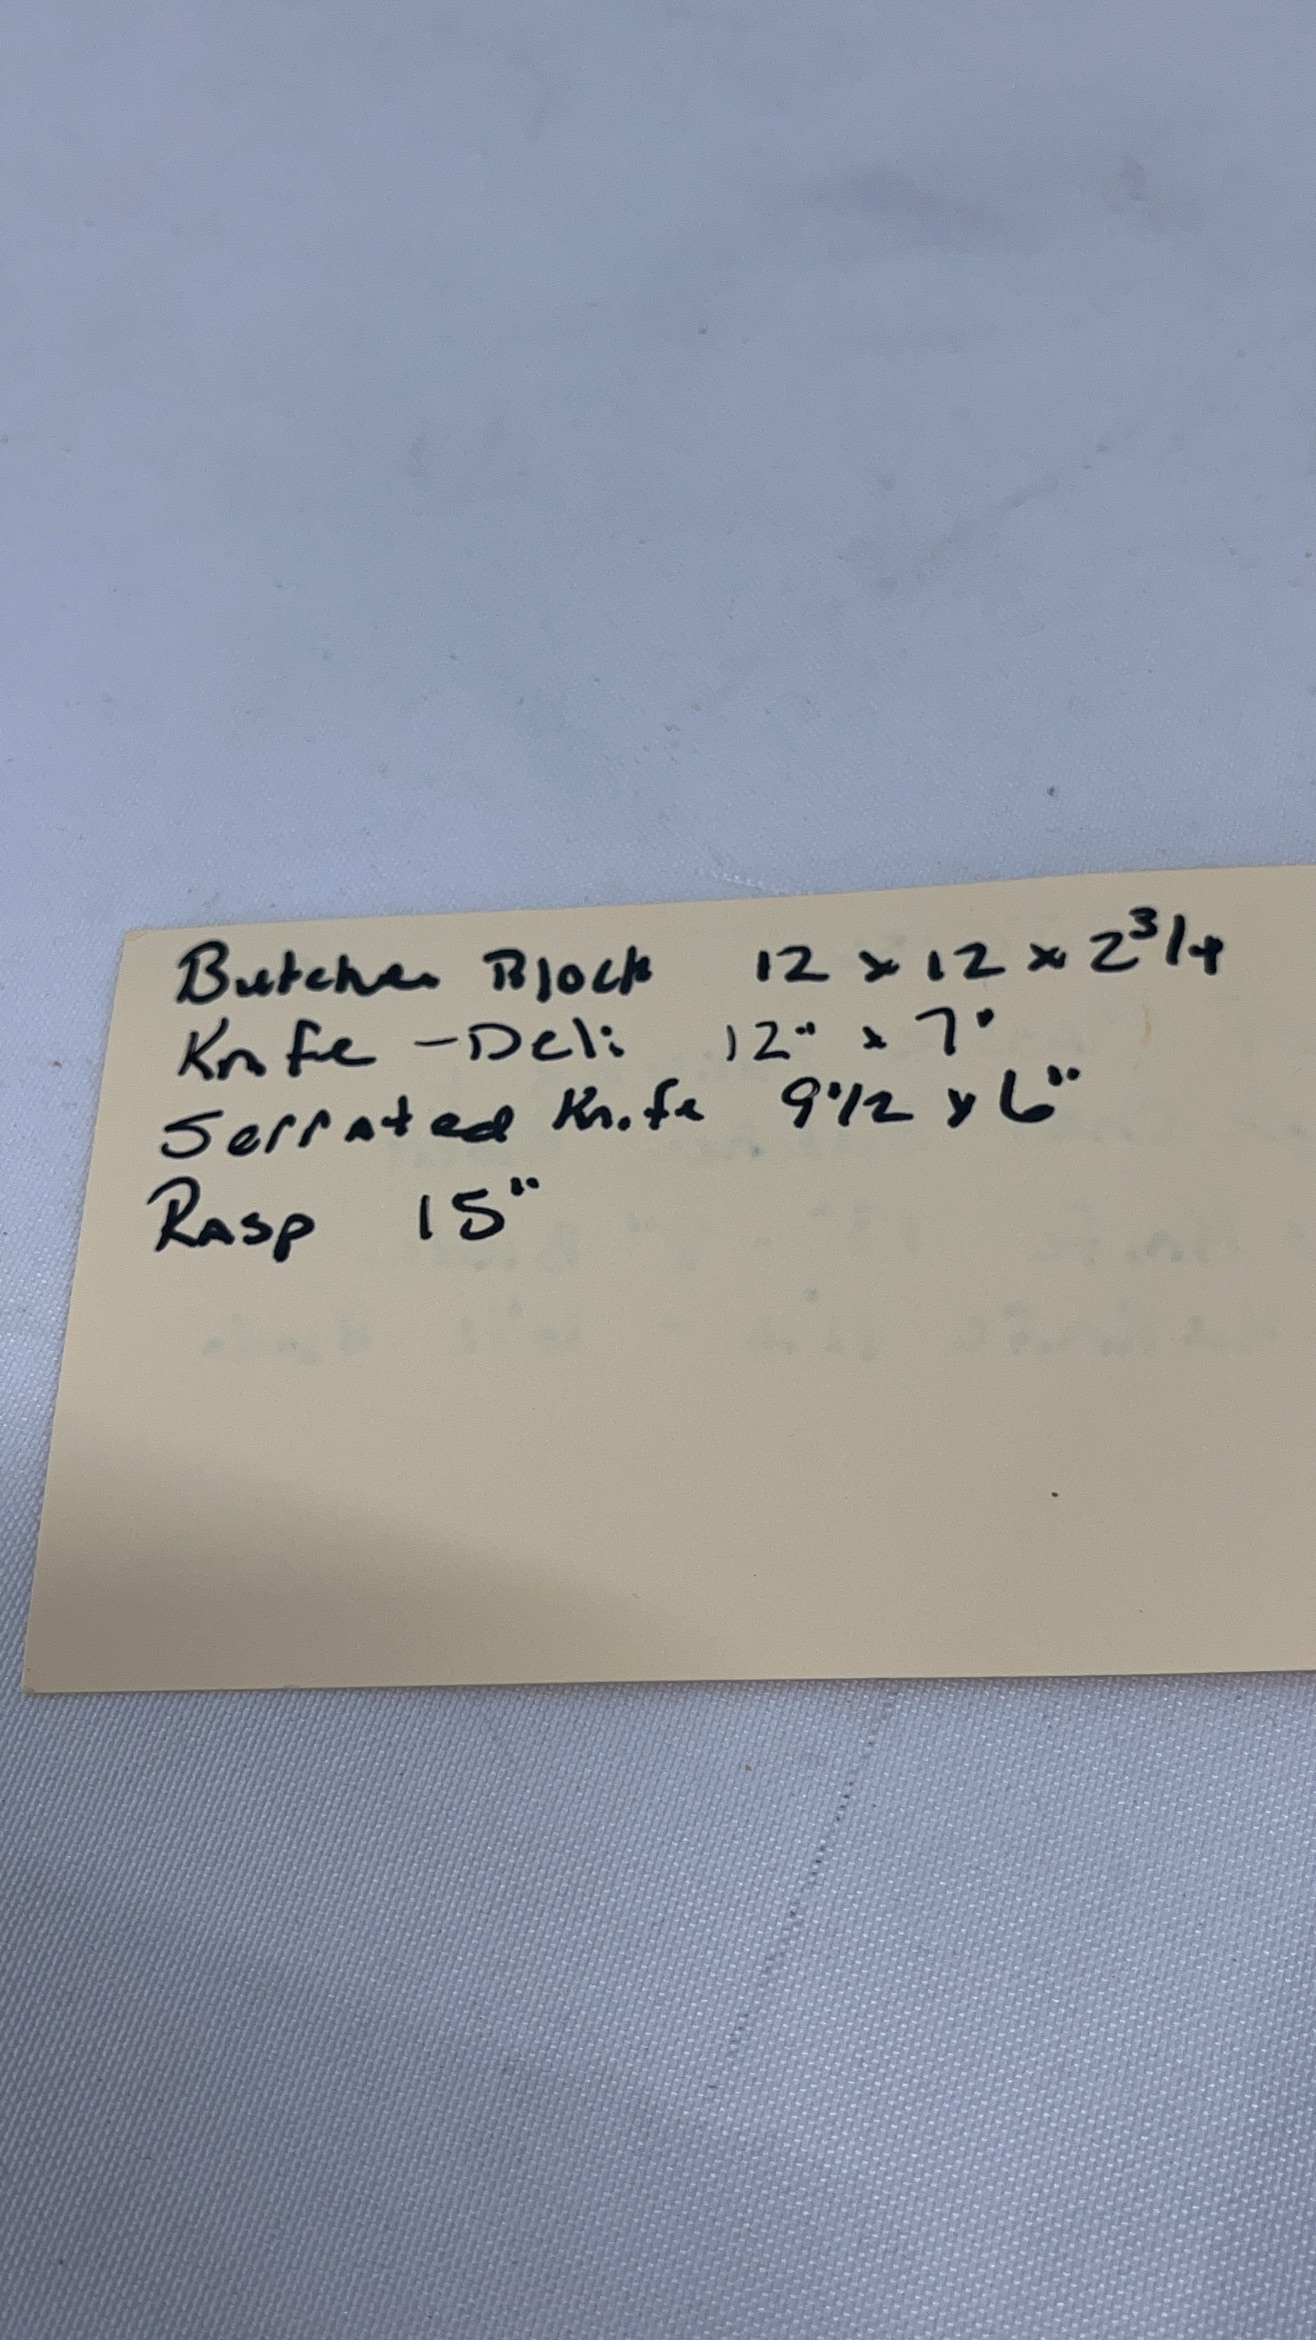 Butcher Block 12 x 12 x 2 3/4
Knife - Deli 12" x 7"
Serrated Knife 9 1/2 x 6"
Rasp 15"